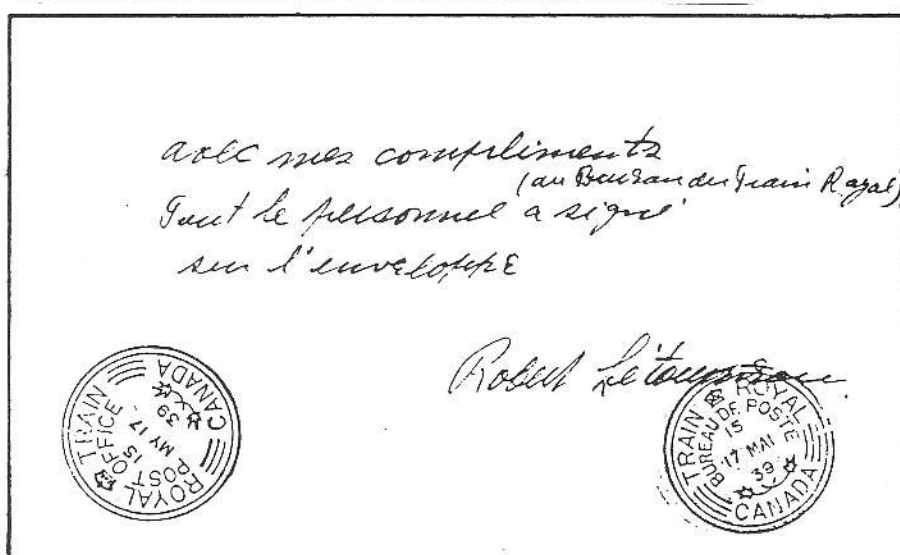 avec mes compliments
(au Bureau du Train Royal)
Tout le personnel a signé
sur l'enveloppe
Robert Létourneau
ROYAL TRAIN
POST OFFICE
15
MY 17
39
CANADA
TRAIN ROYAL
BUREAU DE POSTE
15
17 MAI
39
CANADA